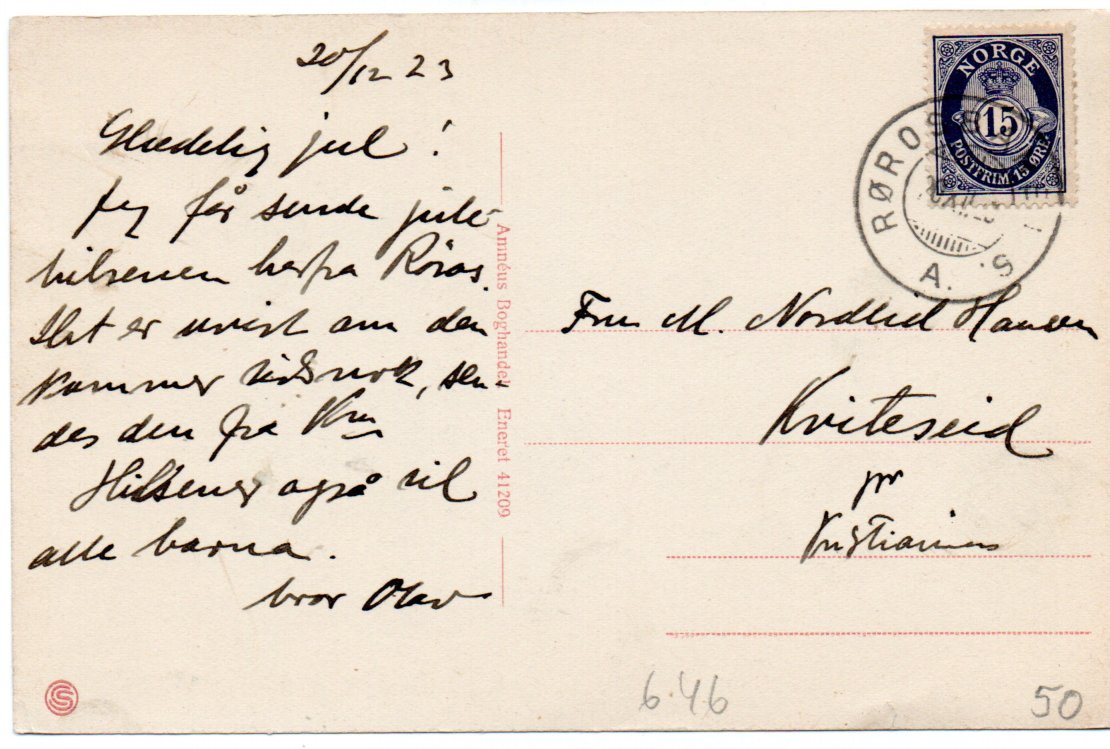 20/12 23
Glædelig jul!
Jeg får sende jule-
hilsenen herfra Röros.
Det er uvist om den
kommer tidsnok, sen-
des den fra Kra
Hilsener også til
alle barna.
bror Olav
Amnéus Boghandel Eneret 41209
NORGE
15
POSTFRIM. 15 ØRE.
RØROS
A. S
Fru M. Nordlid Hansen
Kviteseid
pr
Kristiania
6.46
50